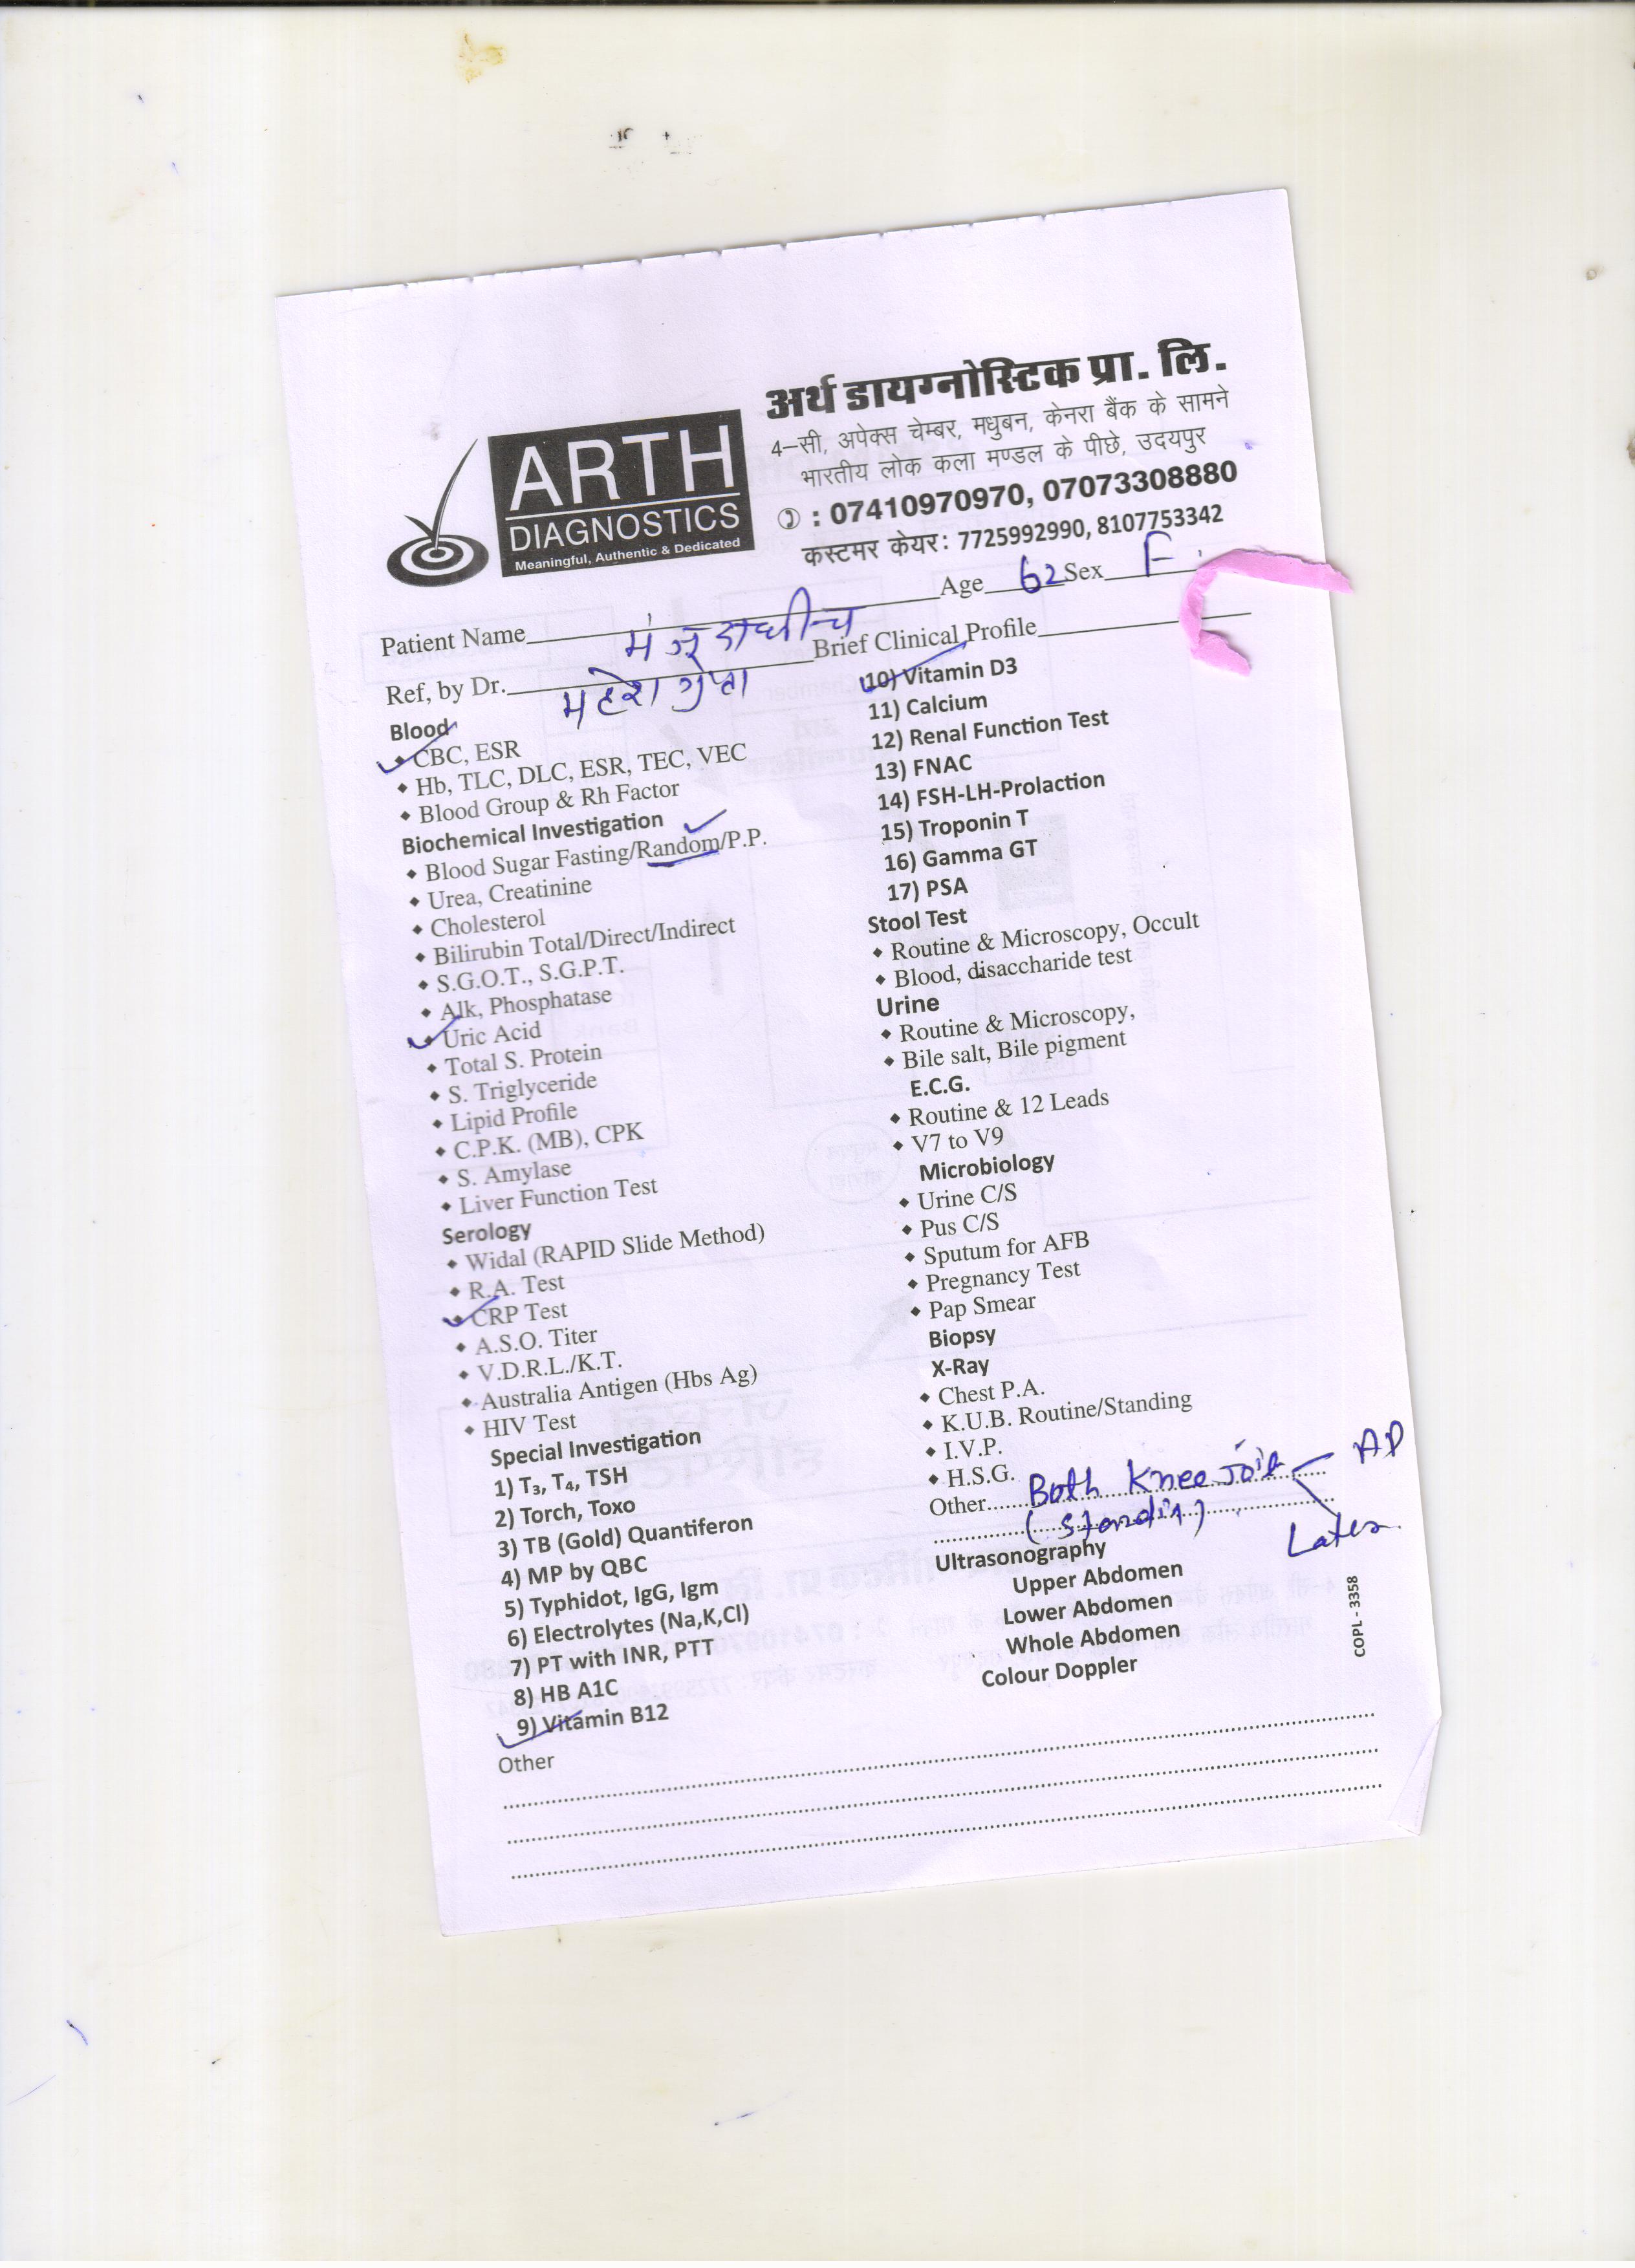 अर्थ डायग्नोस्टिक प्रा. लि.
4-सी, अपेक्स चेम्बर, मधुबन, केनरा बैंक के सामने
भारतीय लोक कला मण्डल के पीछे, उदयपुर
: 07410970970, 07073308880
कस्टमर केयर: 7725992990, 8107753342
ARTH
DIAGNOSTICS
Meaningful, Authentic & Dedicated
Patient Name मंजू दाधीच Age 62 Sex F
Ref, by Dr. महेश गुप्ता Brief Clinical Profile
Blood
CBC, ESR
Hb, TLC, DLC, ESR, TEC, VEC
Blood Group & Rh Factor
Biochemical Investigation
Blood Sugar Fasting/Random/P.P.
Urea, Creatinine
Cholesterol
Bilirubin Total/Direct/Indirect
S.G.O.T., S.G.P.T.
Alk, Phosphatase
Uric Acid
Total S. Protein
S. Triglyceride
Lipid Profile
C.P.K. (MB), CPK
S. Amylase
Liver Function Test
Serology
Widal (RAPID Slide Method)
R.A. Test
CRP Test
A.S.O. Titer
V.D.R.L./K.T.
Australia Antigen (Hbs Ag)
HIV Test
Special Investigation
1) T₃, T₄, TSH
2) Torch, Toxo
3) TB (Gold) Quantiferon
4) MP by QBC
5) Typhidot, IgG, Igm
6) Electrolytes (Na,K,Cl)
7) PT with INR, PTT
8) HB A1C
9) Vitamin B12
Other
10) Vitamin D3
11) Calcium
12) Renal Function Test
13) FNAC
14) FSH-LH-Prolaction
15) Troponin T
16) Gamma GT
17) PSA
Stool Test
Routine & Microscopy, Occult
Blood, disaccharide test
Urine
Routine & Microscopy,
Bile salt, Bile pigment
E.C.G.
Routine & 12 Leads
V7 to V9
Microbiology
Urine C/S
Pus C/S
Sputum for AFB
Pregnancy Test
Pap Smear
Biopsy
X-Ray
Chest P.A.
K.U.B. Routine/Standing
I.V.P.
H.S.G.
Other Both Knee Joit AP
(Standin) Later
Ultrasonography
Upper Abdomen
Lower Abdomen
Whole Abdomen
Colour Doppler
COPL - 3358